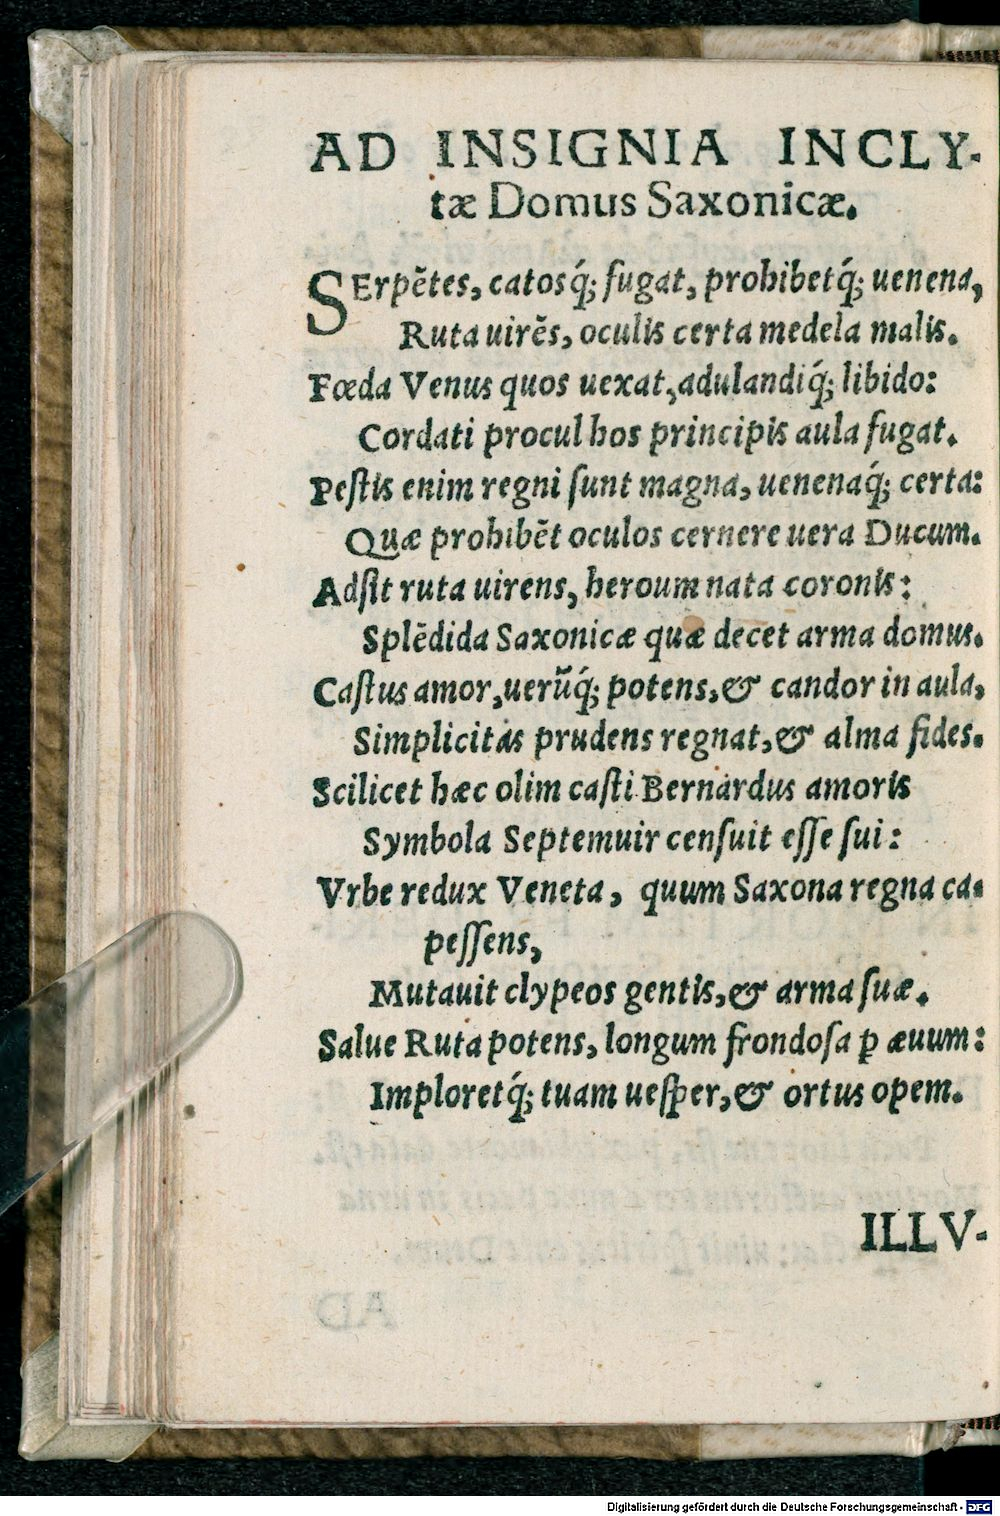 AD INSIGNIA INCLY-
tæ Domus Saxonicæ.
SErpẽtes, catosq́; fugat, prohibetq́; uenena,
Ruta uirẽs, oculis certa medela malis.
Fœda Venus quos uexat, adulandiq́; libido:
Cordati procul hos principis aula fugat.
Peſtis enim regni ſunt magna, uenenaq́; certa:
Quæ prohibẽt oculos cernere uera Ducum.
Adſit ruta uirens, heroum nata coronis:
Splẽdida Saxonicæ quæ decet arma domus.
Caſtus amor, uerũq́; potens, & candor in aula,
Simplicitas prudens regnat, & alma fides.
Scilicet hæc olim caſti Bernardus amoris
Symbola Septemuir cenſuit eſſe ſui:
Vrbe redux Veneta, quum Saxona regna ca-
peſſens,
Mutauit clypeos gentis, & arma ſuæ.
Salue Ruta potens, longum frondoſa ꝑ æuum:
Imploretq́; tuam ueſper, & ortus opem.
ILLV-
Digitalisierung gefördert durch die Deutsche Forschungsgemeinschaft - DFG